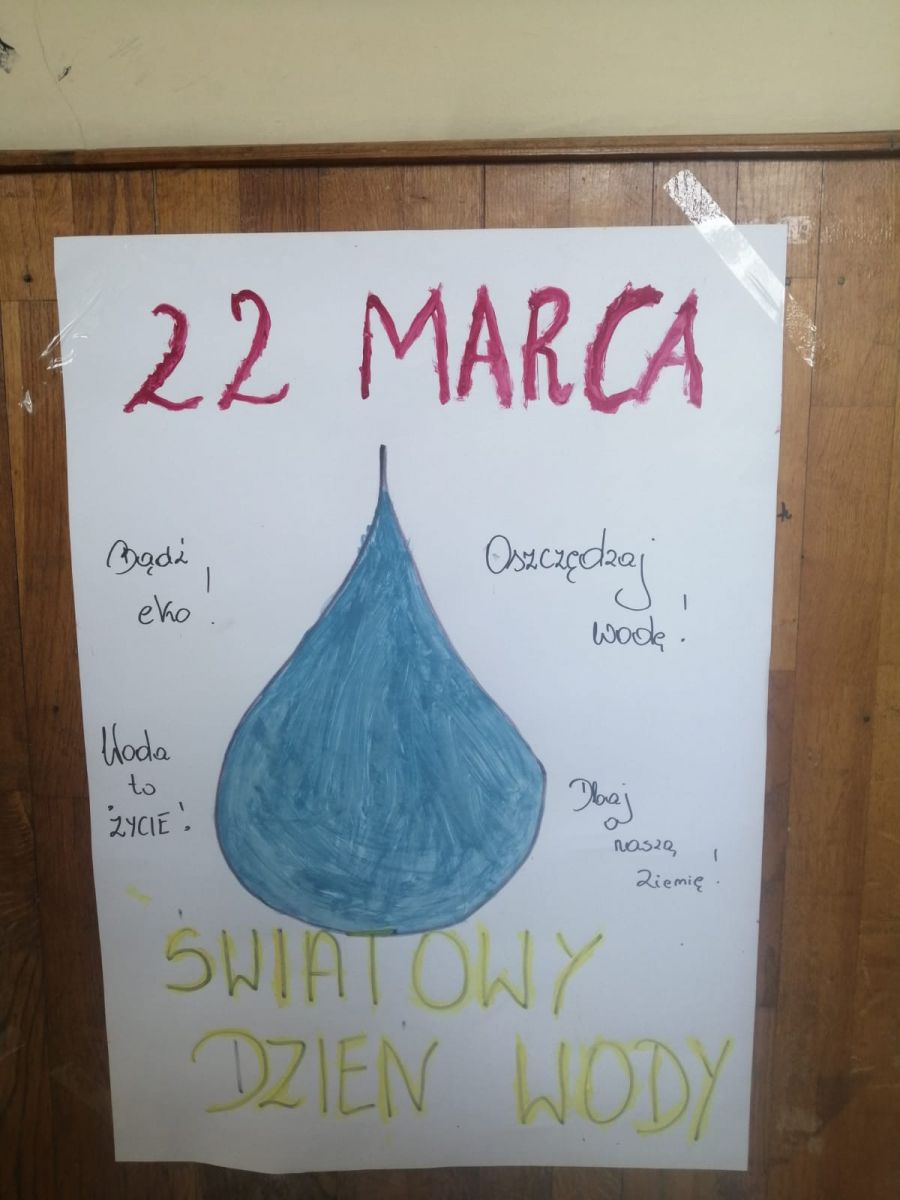 22 MARCA
Bądź
eko!
Oszczędzaj
wodę!
Woda
to
ŻYCIE!
Dbaj
o
naszą
Ziemię!
ŚWIATOWY
DZIEŃ WODY